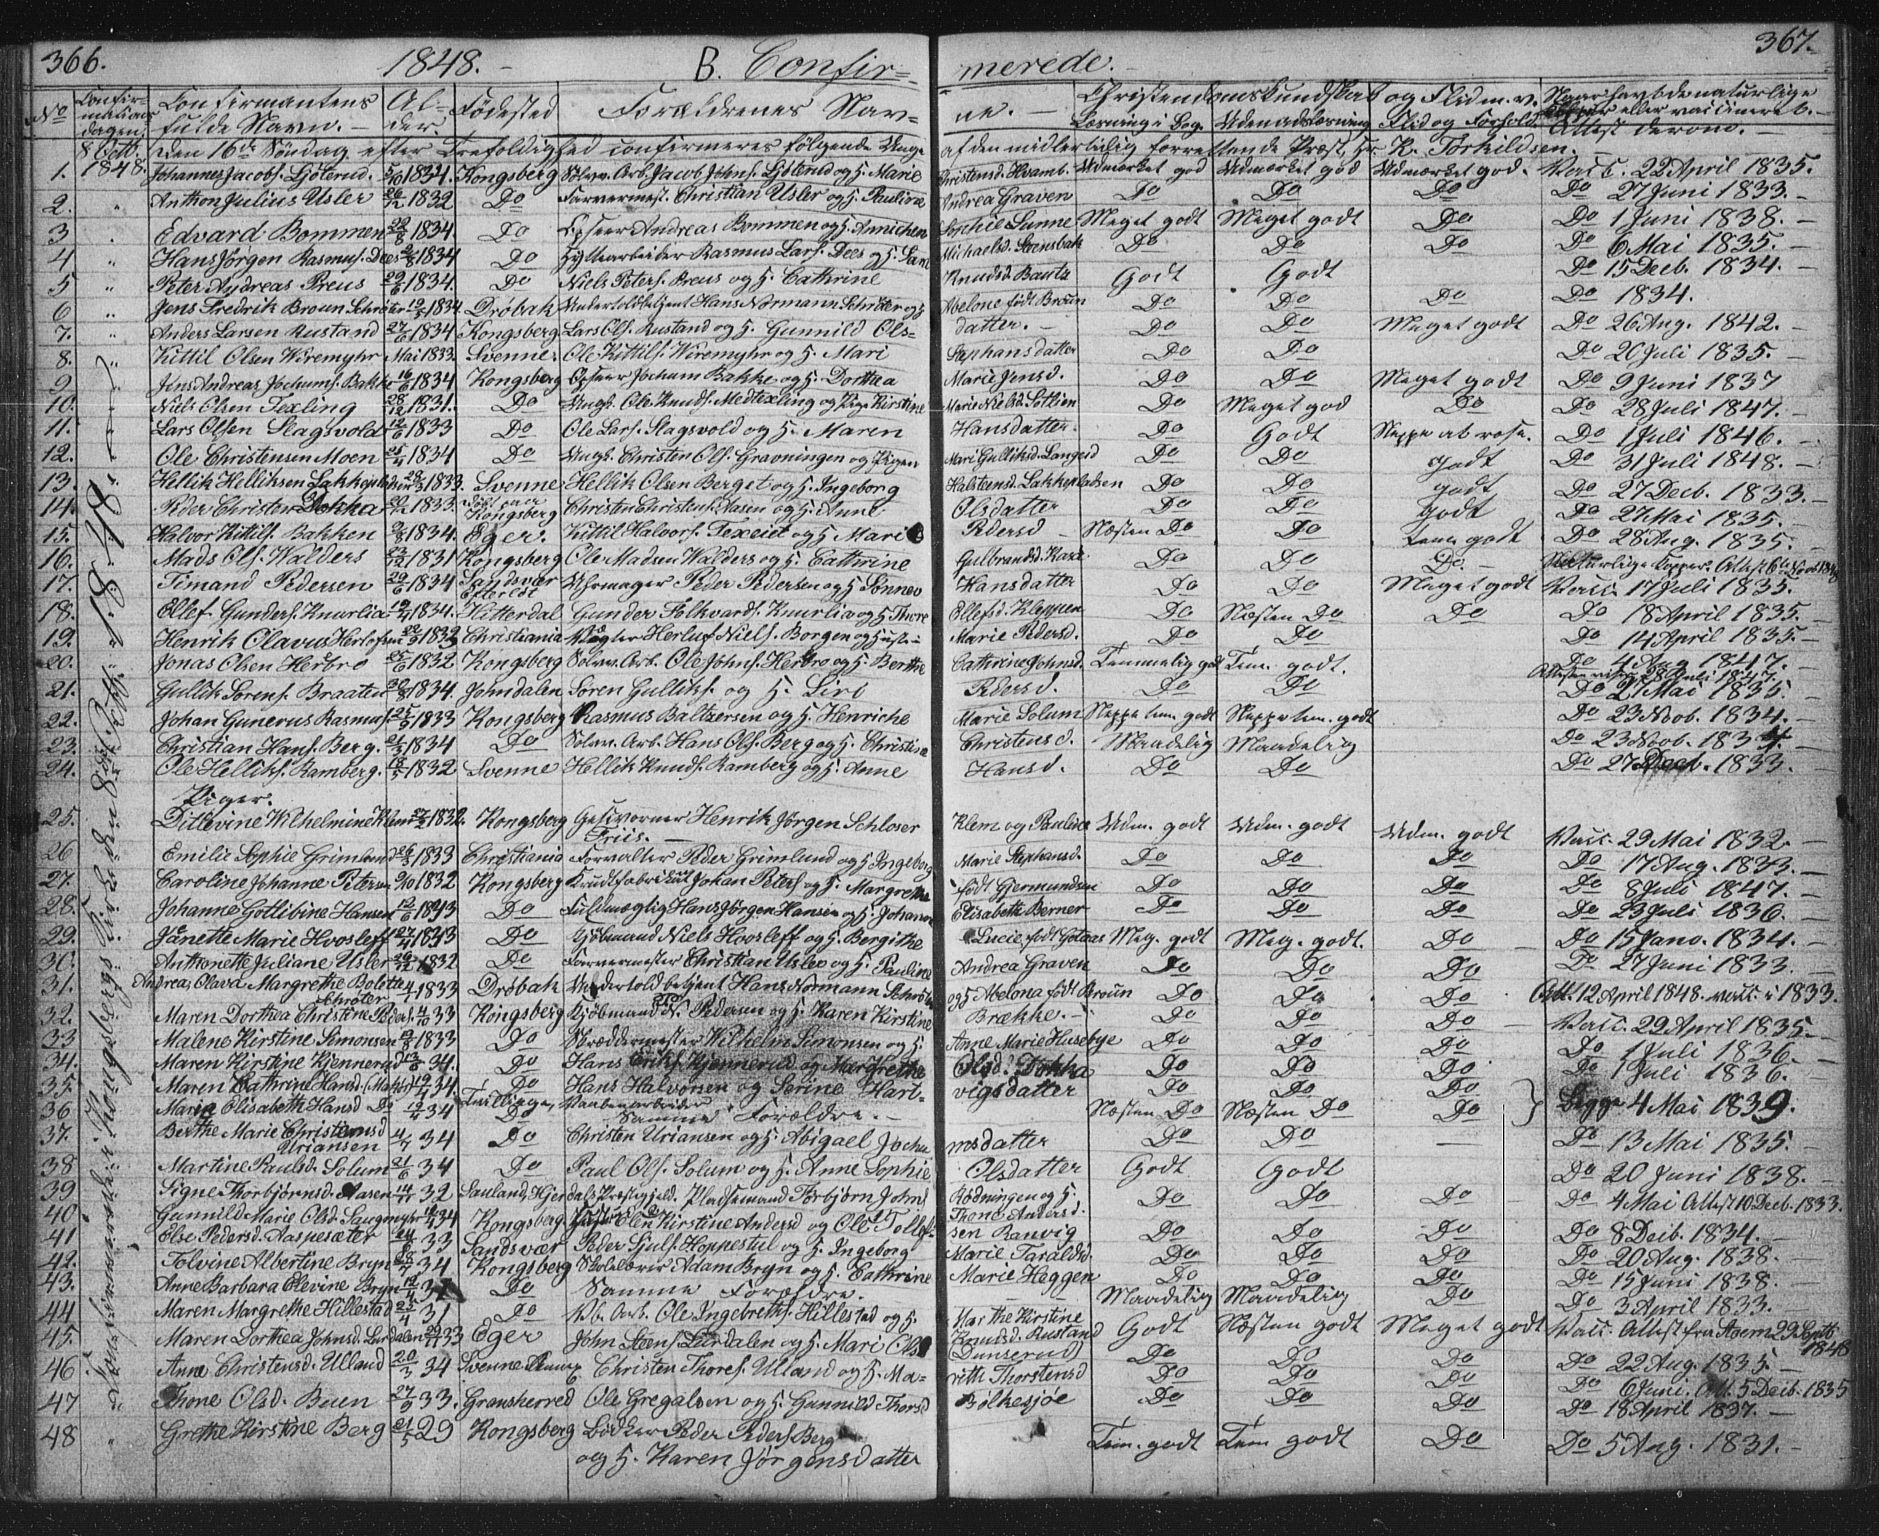 366. 1848. B. Confir= merede. 367.
No Confirmations dagen. Confirmantens fulde Navn. Alder. Födested Forældrenes Nav= ne. Christendomskundskab og Flid m.v. Læsning i Bog. Udenadslæsning Flid og Forhold Naar havt de naturlige Kopper eller vaccineret. Attest derom.
8 Octb. 1848. den 16de Söndag efter Trefoldighed confirmeres fölgende Unge af den midlertidig forrettende Præst, Hr. K. Torkildsen.
1. Johannes Jacobs. 5/10 1834. Kongsberg Sölvv. Arb. Jacob Johns. og H. Marie Christensd. Hvamb. Udmærket god Udmærket god Udmærket god. Vacc. 22 April 1835.
2. " Anthon Julius Usler 26/12 1832 Do Farvermest. Christian Usler og H. Pauline Andrea Graven Do Do Do Do 27 Juni 1833.
3 " Edvard Bommen 29/8 1834. Do Opseer Andreas Bommen og H. Annichen Sophie Lunne Meget godt Meget godt Do Do 1 Juni 1838.
4 " Hans Jörgen Rasmus. Dees 2/8 1834 Do Hyttearbeider Rasmus Lars. Dees og H. Michaelsd. Steensbak Do Do Do Do 6 Mai 1835.
5 " Peter Andreas Preus 29/6 1834. Do Niels Peters. Preus og H. Cathrine Knudsd. Bautz Godt Godt Do 15 Decb. 1834.
6 " Jens Fredrik Broun Schröter 19/3 1834. Dröbak Undertoldbetjent Hans Normann Schröter og H. Abelone födt Broun Do Do Do Do 1834.
7. " Anders Larsen Rustand 27/6 1834 Kongsberg Lars Ols. Rustand og H. Gunnild Ols- datter. Do Do Meget godt Do 26 Aug. 1842.
8. " Kittil Olsen Wiremyhr Mai 1833. Svenne. Ole Kittils. Wiremyhr og H. Mari Stephansdatter Do Do Do 20 Juli 1835.
9. Jens Andreas Jochums. Bakke 16/6 1834 Kongsberg Opseer Jochum Bakke og H. Dorthea Marie Jensd. Do Do Meget godt Do 9 Juni 1837
10. Niels Olsen Texling 28/12 1831. Do Ungk. Ole Knuds. Medtexling og Pige Kirstine Marie Nielsd. Do Meget god Do Do 28 Juli 1847.
11. Lars Olsen Slagsvold 12/6 1833 Do Ole Lars. Slagsvold og H. Maren Hansdatter. Do Godt Neppe at rose. Do 1 Juli 1846.
12. Ole Christensen Moen 25/4 1834 Do Ungk. Christen Ols. Gravningen og Pigen Mari Gulliksd. Langeid Do Do Godt Do 31 Juli 1848.
13. Hellik Helliksen Lakkepladsen 28/3 1833. Svenne Hellik Olsen Berget og H. Ingeborg Halsteensd. Lakkepladsen Do Do godt Do 27 Decb. 1833.
14. Peder Christen Dokka 20/12 1833. födt paa Kongsberg Christen Christens. Aasen og H. Anne Olsdatter Do Do godt Do 27 Mai 1835.
15. Halvor Kittils. Bakken 9/8 1834. Eger. Kittil Halvors. Texeit og H. Mari Pedersd Næsten Do Do Tem. godt Do 28 Aug. 1835.
16. Mads Ols. Walders 23/12 1831 Kongsberg Ole Madsen Walders og H. Cathrine Gulbrandsd. Do Do Do Naturlige Kopper. Attest 6te Novb 1848
17. Simand Pedersen 29/6 1834 Sandsvær Uhrmager Peder Pedersen og H. Sönnev Hansdatter Do Do Meget godt Vacc. 17 Juli 1835.
18. Ellef Gunders. Knurlia 19/4 1834. Hitterdal Gunder Folkvards. Knurlia og H. Thore Ellefsd. Kleppen Do Næsten Do Do Do 18 April 1835.
19. Henrik Olavus Herlofsen 22/9 1832 Christiania Herluf Niels. Borgen og Hustru Marie Pedersd. Do Do Do 14 April 1835.
20. Jonas Olsen Herbro 25/6 1832 Kongsberg Sölvv. Arb. Ole Johns. Herbro og H. Berthe Cathrine Johnsd. Temmelig godt Tem. godt. Do 4 Aug 1847. Attesten 28 Juli 1847.
21. Gullik Sörens. Braaten 30/8 1834. Jonsdalen Sören Gulliks. og H. Siri Pedersd. Do Do Do 21 Mai 1835.
22. Johan Gunerus Rasmus. 25/5 1833 Kongsberg Rasmus Baltzersen og H. Henriche Marie Solum Neppe tem. godt Neppe tem. godt Do 23 Novb. 1834.
23. Christian Hans. Berg. 21/3 1834 Do Sölvv. Arb. Hans Ols. Berg og H. Christine Christensd. Maadelig Maadelig Do 23 Novb. 1834.
24. Ole Helliks. Ramberg. 18/5 1832 Svenne Hellik Knuds. Ramberg og H. Anne Hansd. Do Do Do 27 Decb. 1833.
Piger.
25. Ditlevine Wilhelmine Klem 27/2 1832. Kongsberg Gesworner Henrik Jörgen Schloser Klem og Pauline Friis. Udm. godt Udm. godt Udm. godt Vacc. 29 Mai 1832.
26 Emilie Sophie Grimlund 26/3 1833 Christiania Forvalter Peder Grimlund og H. Ingeborg Marie Stephansd. Do Do Do Do 17 Aug. 1833.
27. Caroline Johanne Petersen 9/10 1832 Kongsberg Krudtfabrikör Johan Peters. og H. Margrethe födt Gjermundsen Do Do Do Do 8 Juli 1847.
28. Johanne Gottlibine Hansen 12/6 1833 Do Fuldmægtig Hans Jörgen Hansen og H. Johanne Elisabeth Berner Do Do Do Do 23 Juli 1836.
29. Janette Marie Hvosleff 27/4 1833 Do Kjöbmand Niels Hvosleff og H. Bergithe Lucie födt Gotaas Meg. godt Meg. godt. Do Do 15 Janv. 1834.
30. Anthonette Juliane Usler 26/12 1832 Do Farvermester Christian Usler og H. Pauline Andrea Graven Do Do Do Do 27 Juni 1833.
31. Andrea Olava Margrethe Bolette Schröter 4/4 1833 Dröbak Undertoldbetjent Hans Normann Schröter og H. Abelona födt Broun Do Do Do Att. 12 April 1848. vacc. i 1833.
32. Maren Dorthea Christine Peders. 4/10 33 Kongsberg Kjöbmand N. Pedersen og H. Karen Kirstine Brække. Do Do Do Vacc. 29 April 1835.
33 Malene Kirstine Simonsen 12/3 1833 Do Skræddermester Wilhelm Simonsen og H. Anne Marie Husebye Do Do Do Do 1 Juli 1836.
34. Maren Kirstine Kjennerud 13/6 34. Do Hans Eriks. Kjennerud og Margrethe Olsd. Dokka Do Do Do Do 1 Juli 1836.
35. Maren Cathrine Hansd. 19/4 34 Do Hans Halvorsen og Serine Hart- vigsdatter Do Do Do
36 Maria Elisabeth Hansd Do 19/4 34 Tvillinger, Do Vaabenarbeider Samme Forældre. Næsten Do Næsten Do Do Begge 4 Mai 1839.
37. Berthe Marie Christensd Uriansen 4/7 34 Do Christen Uriansen og H. Abigael Jochu msdatter Do Do Do 13 Mai 1835.
38 Martine Paulsd. Solum 21/6 34 Do Paul Ols. Solum og H. Anne Sophie Olsdatter Godt Godt Do 20 Juni 1838.
39 Signe Thorbjörnsd. Aasen 14/11 32 Sauland, Hjerdals Prestegjeld. Pladsemand Torbjörn Johns. Rodningen og H. Thone Andersd. Do Do Do Do 4 Mai Attest 10 Decb. 1833.
40 Gunnild Marie Olsd. Saugmyhr 18/4 34 Kongsberg Kirstine Andersd og Ole Tollef- sen Ranvig Do Do Do Do 8 Decb. 1834.
41 Else Pedersd. Raspesæter 24/8 33 Sandsvær Peder Sjuls. Hoppestul og H. Ingeborg Marie Taraldsd. Do Do Do Do 20 Aug. 1838.
42. Tolvine Albertine Bryn 28/7 34 Kongsberg Skolelærer Adam Bryn og H. Cathrine Marie Heggen Do Do Do Do 15 Juni 1838.
43. Anne Barbara Olevine Bryn 12/4 Do Samme Forældre. Maadelig Maadelig Do Do 3 April 1833.
44 Maren Margrethe Hillestad 25/4 31 Do Vb. Arb. Ole Ingebreths. Hillestad og H. Marthe Kirstine Knudsd. Rustand Godt Næsten godt Meget godt Vacc. Attest fra 29 Septb 1848
45. Maren Dorthea Johnsd. Lurdalen 33 Eger John Steens. Lurdalen og H. Mari Ols (Gunserud) Do Do Do Do 22 Aug. 1835.
46 Anne Christensd. Ulland 20/3 34 Svenne Christen Thores. Ulland og H. Ma- rith Thorstensd Do Do Do Do 6 Juni. Att. 5 Decb. 1835
47 " Thone Olsd. Buen 27/9 33. Gransherred Ole Gregalsen og H. Gunnild Thorsd Bolkesjöe Do Do Do Do 18 April 1837.
48 " Grethe Kirstine Berg 21/5 29 Kongsberg Bödker Peder Peders. Berg og H. Karen Jörgensdatter Tem. godt Tem godt Do Do 5 Aug. 1831.
Confirmerede i Kongsbergs Kirke den 8de Octb. 1848.